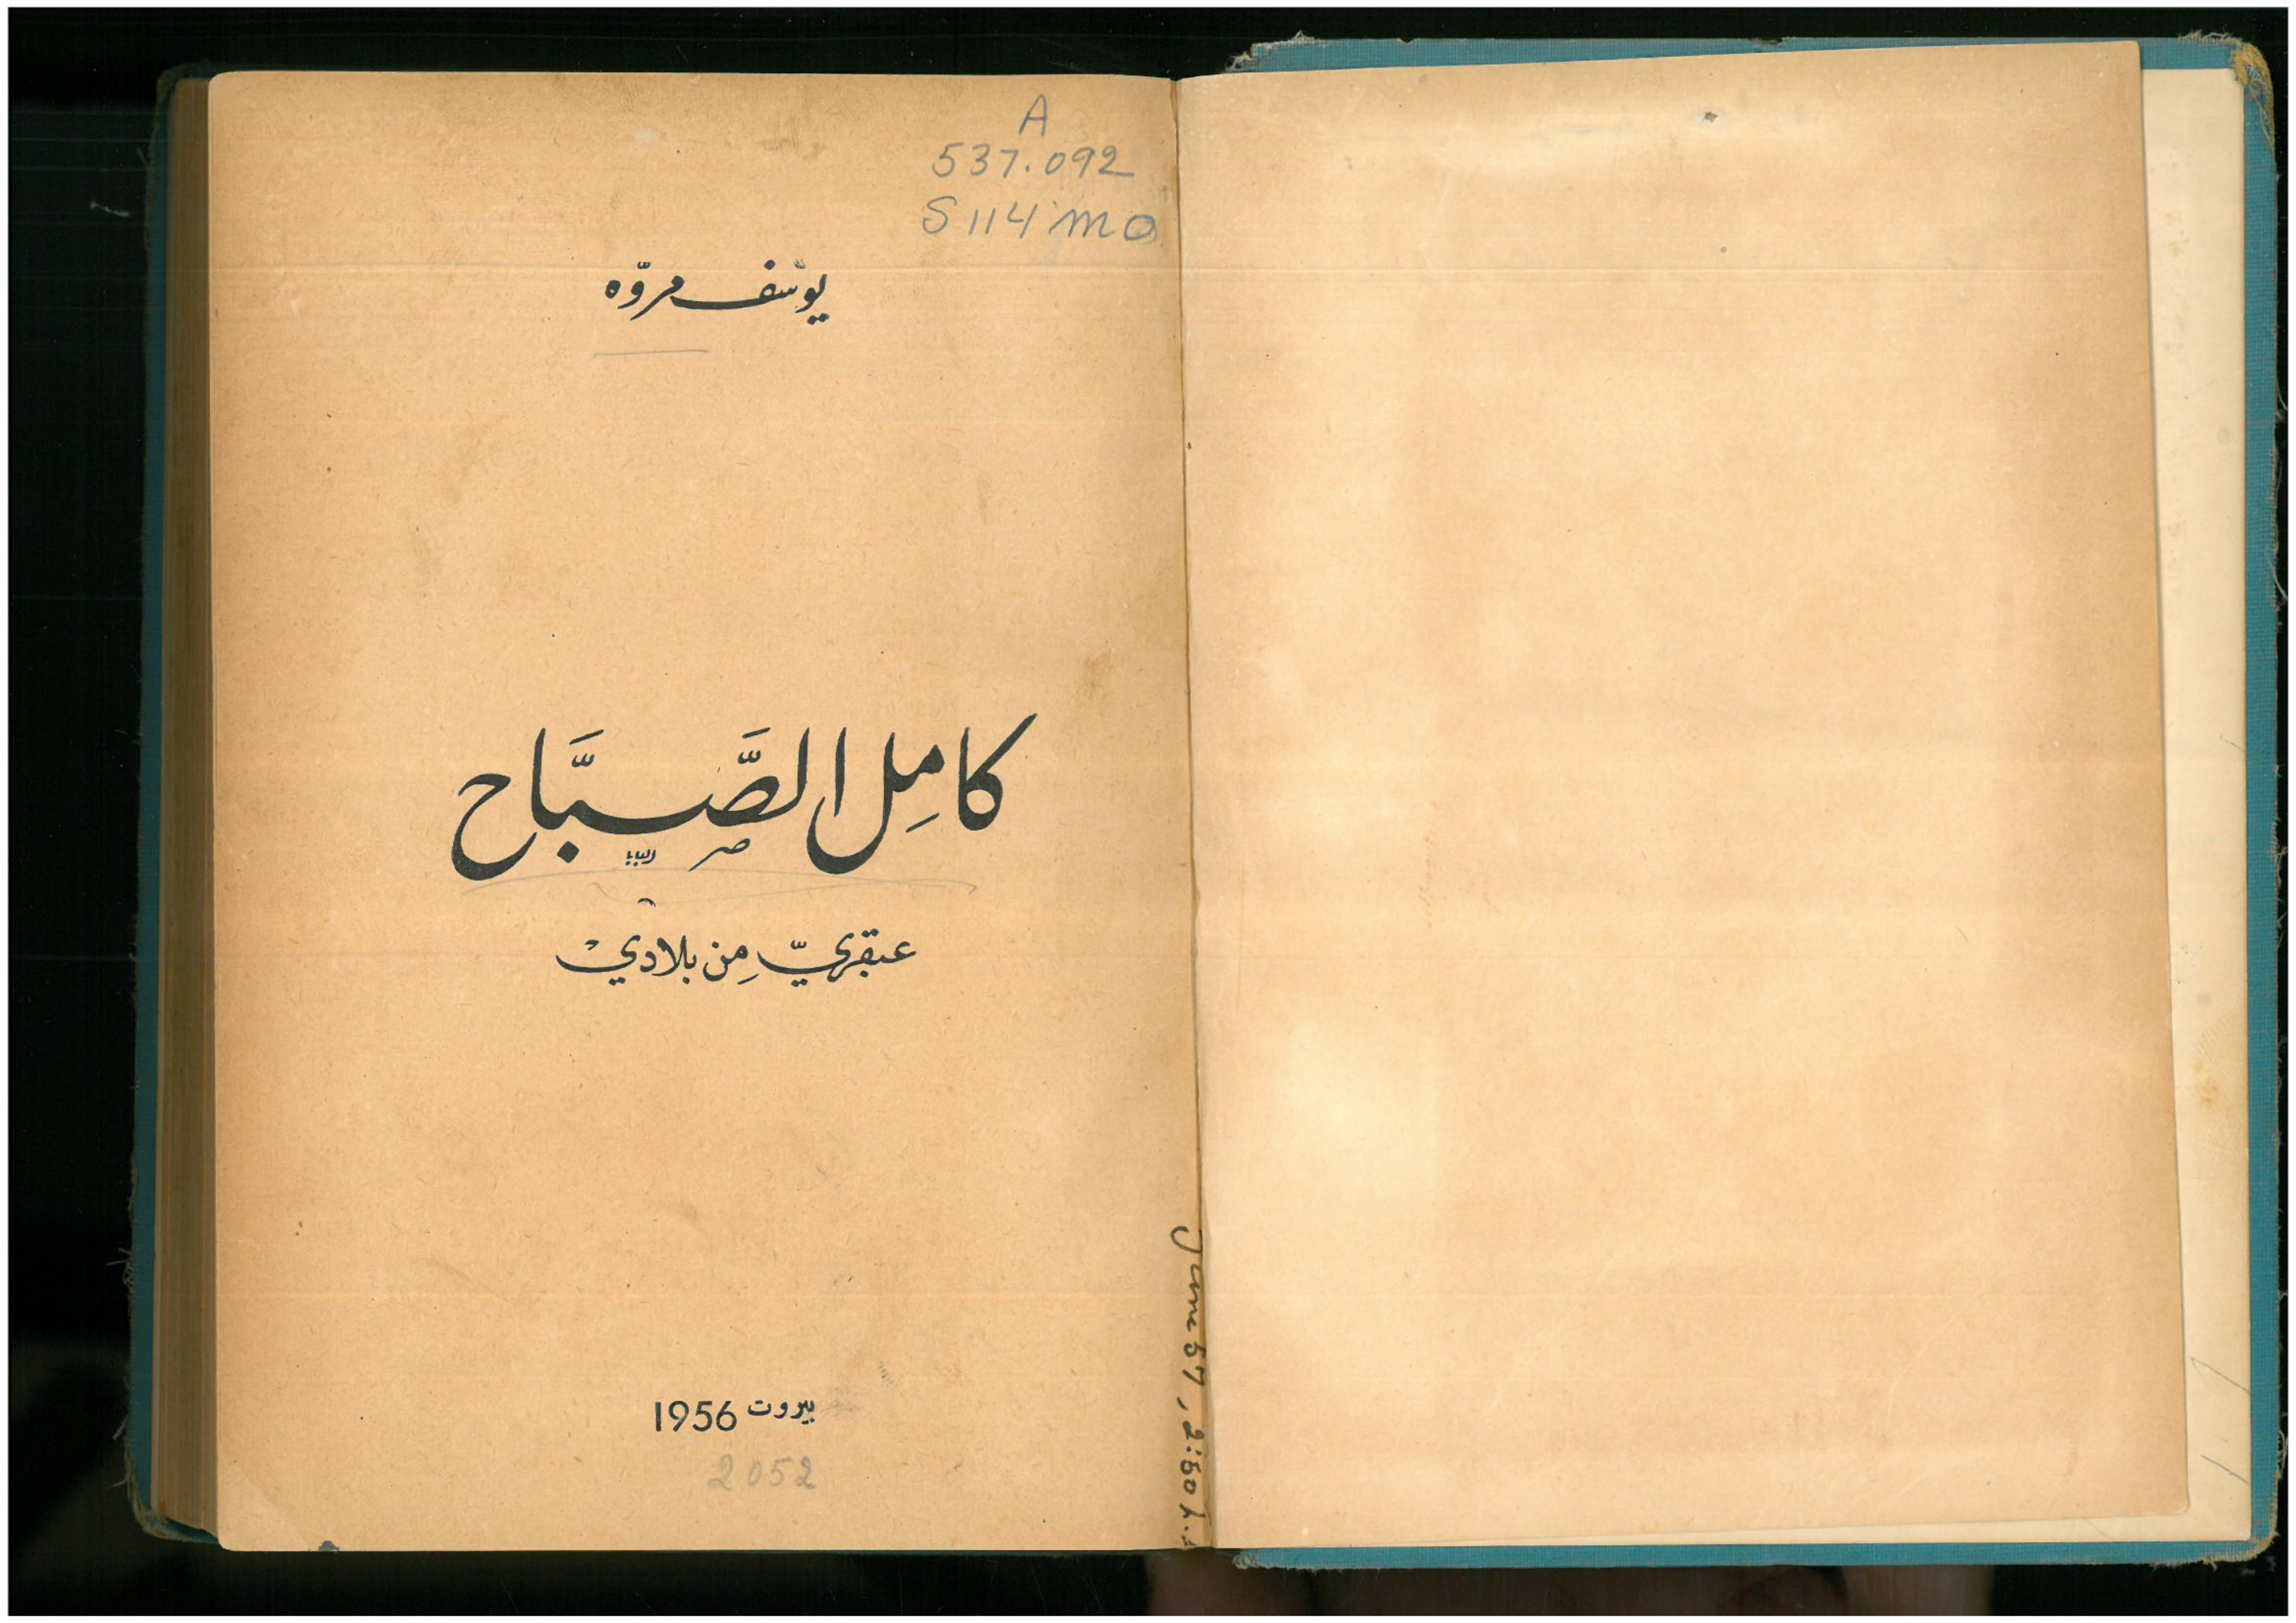 A
537.092
S 114 ma
يوسف مروّه
كامِل الصَّبَّاح
عبقريّ مِن بلاديْ
بيروت 1956
2052
June 57, 2:50 L.